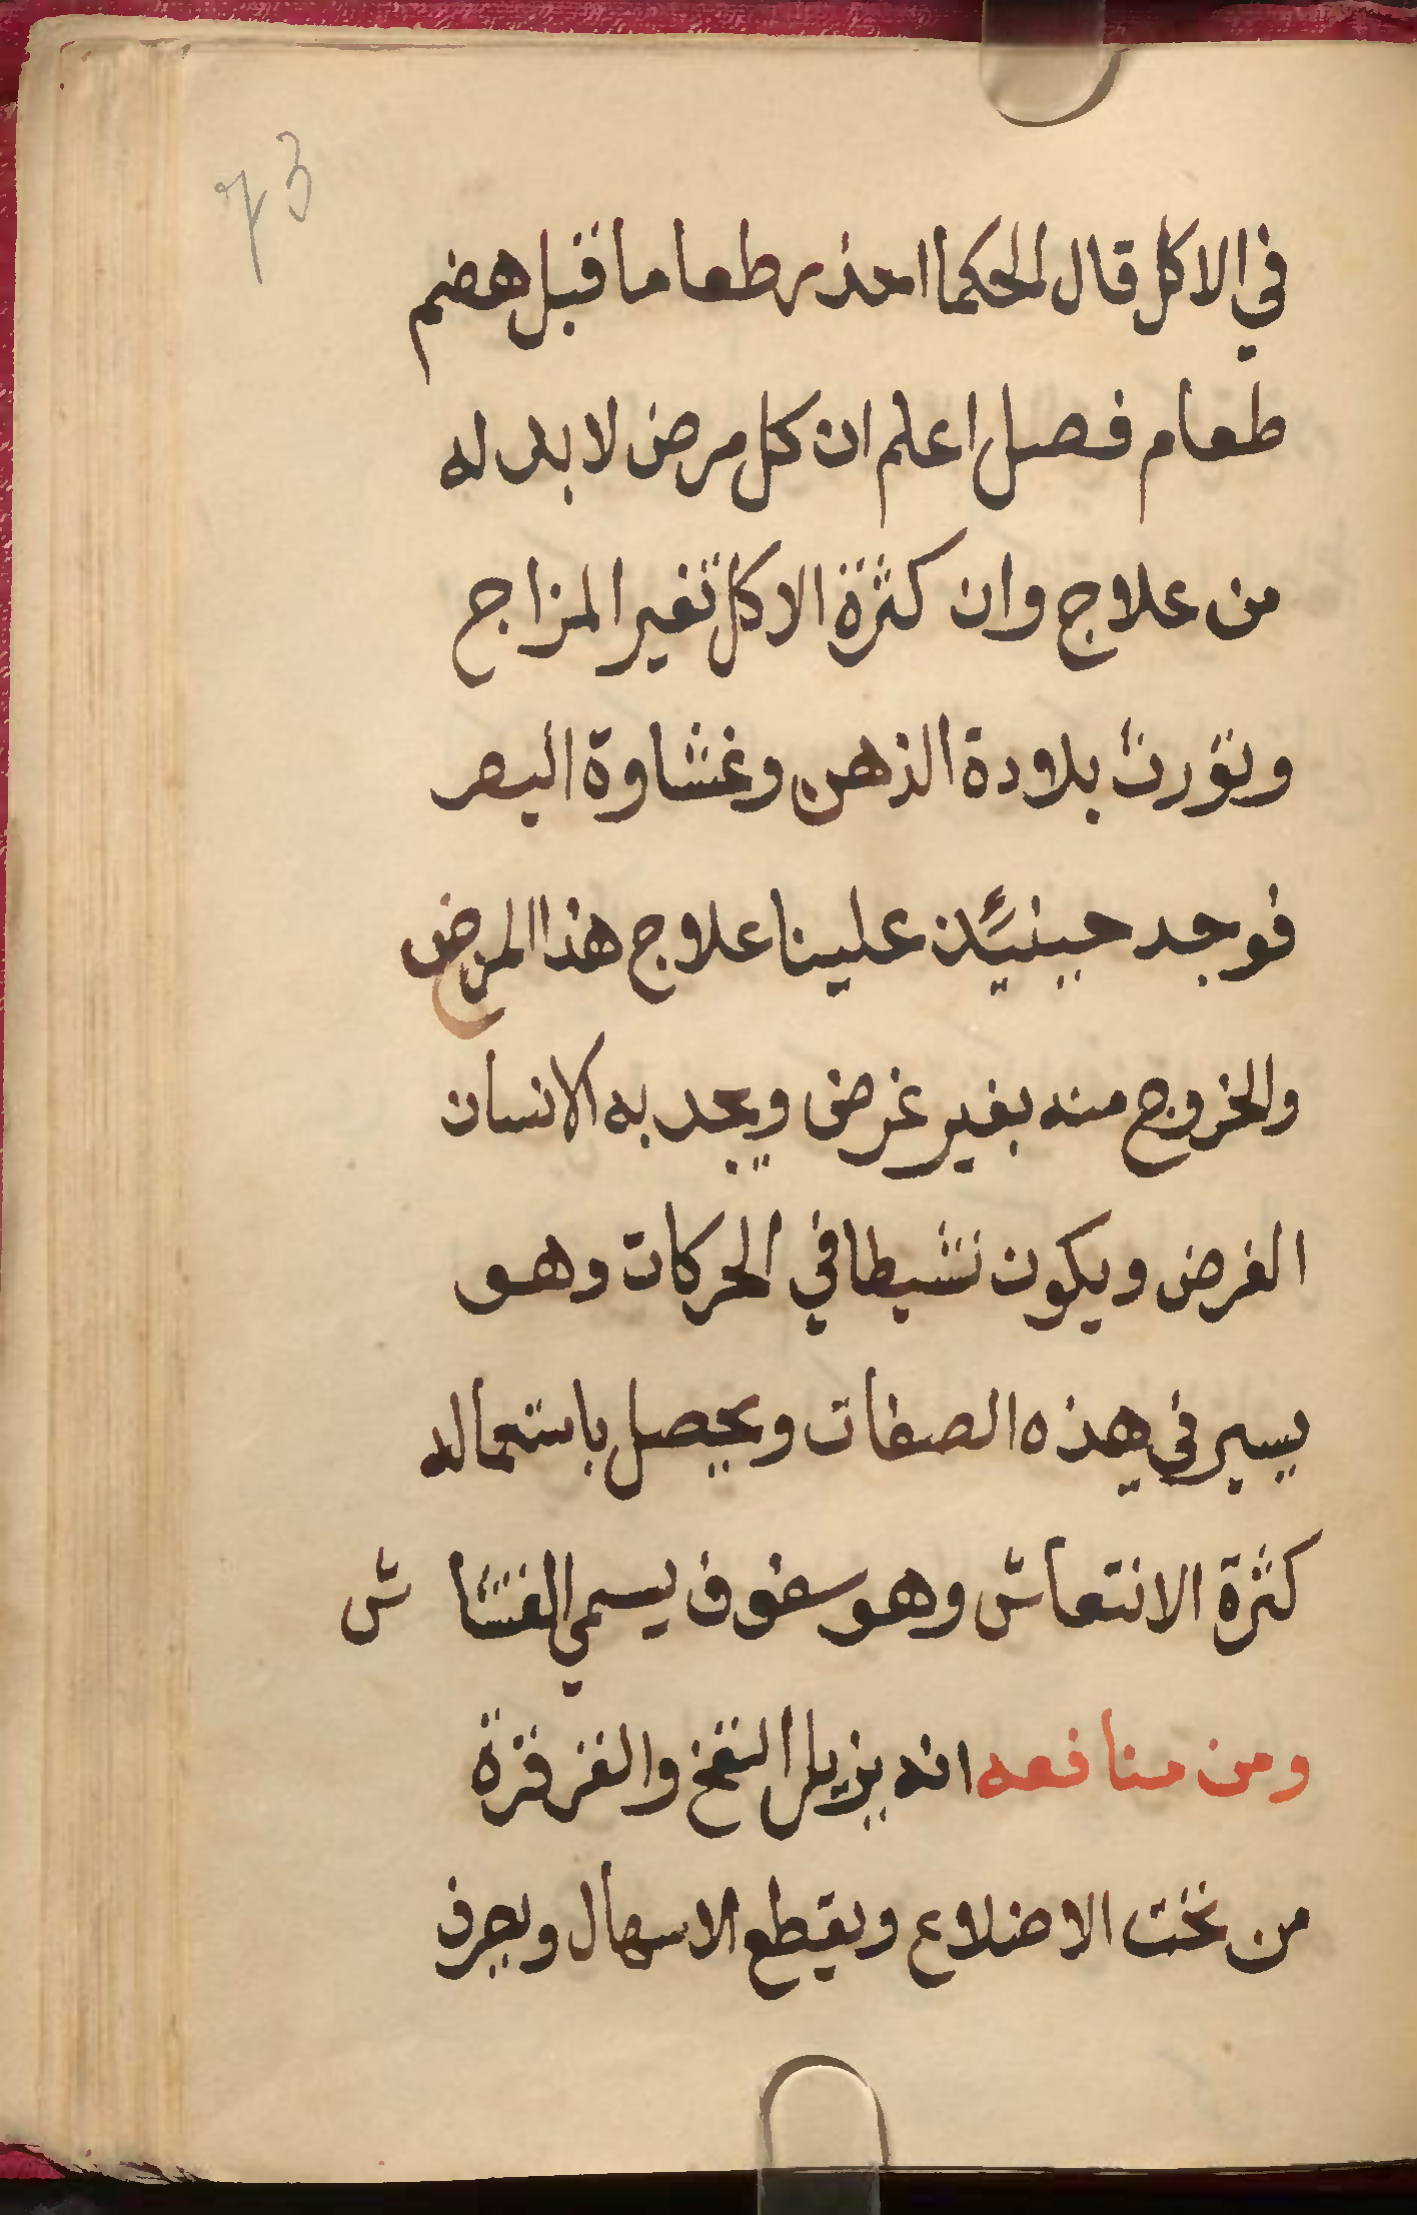 73
في الاكل قال الحكما احذر طعاما قبل هضم
طعام فصل اعلم ان كل مرض لا بد له
من علاج وان كثرة الاكل تغير المزاج
وتورث بلادة الذهن وغشاوة البصر
فوجد حينئيذ علينا علاج هذا المرض
والخروج منه بغير غرض ويجد به الانسان
الغرض ويكون نشيطا في الحركات وهو
يسير في هذه الصفات ويحصل باستعماله
كثرة الانتعاش وهو سفوف يسمي الفشاش
ومن منافعه انه يزيل النفخ والقرقرة
من تحت الاضلاع ويقطع الاسهال ويجرف